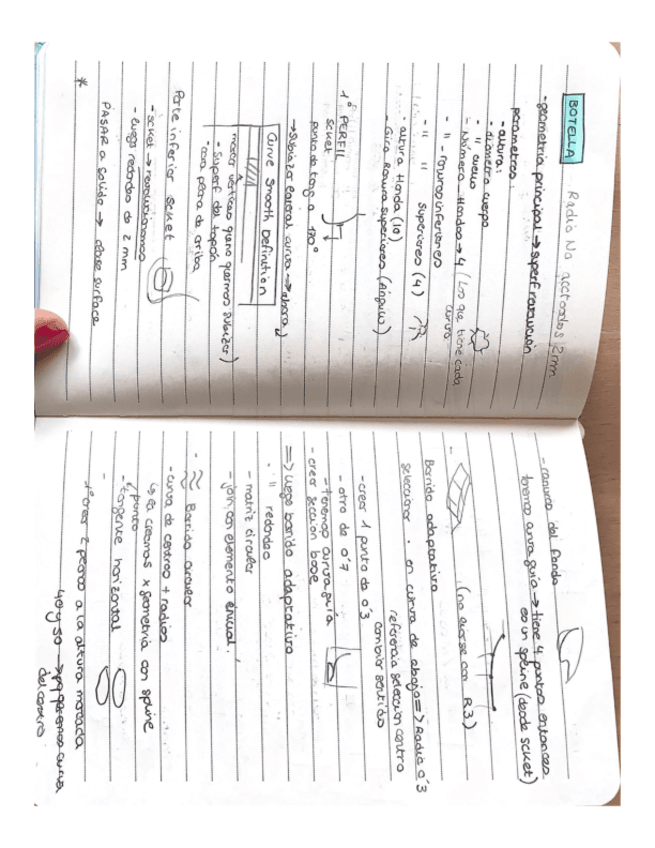 BOTELLA Radio No acotados 2mm
- geometría principal → superf revolución
parametros:
- altura:
- diámetro cuerpo
- " cuello
- Número - Hondas → 4 (Los que tiene cada
curva
- " - ranuras inferiores
- " " superiores (4)
- altura Honda (10)
- Giro Ranura superiores (Ángulo)
1º PERFIL
scket
punto de tang a 170º
→ Suavizar general curva → ahora
Curve Smooth Definition
- Superf del tapón
- cara plana de arriba
Parte inferior scket
- scket → revolucionamos
- luego redondeo de 2mm
PASAR a sólido → close surface
*
- ranuras del fondo
tenemos curva guía → tiene 4 puntos entonces
es un spline (desde scket)
(no curve con R3)
Barrido adaptativo
seleccionar · en curva de abajo => Radio 0'3
referencia selección contra
cambiar sentido
- crear 1 punto de 0'3
- otro de 0'7
- tenemos curva guía
- crear sección base
=> luego barrido adaptativo
- " redondeo
- matriz circular
- join con elemento inicial.
- Barrido circular
- curva de centros + radios
↳ la creamos x geometría con spline
punto
- tangente horizontal
- 1º crear 2 planos a la altura marcada
40 y 50 →
del centro